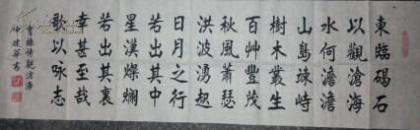 東臨碣石
以觀滄海
水何澹澹
山島竦峙
樹木叢生
百艸豐茂
秋風蕭瑟
洪波湧起
日月之行
若出其中
星漢燦爛
若出其裏
幸甚至哉
歌以咏志